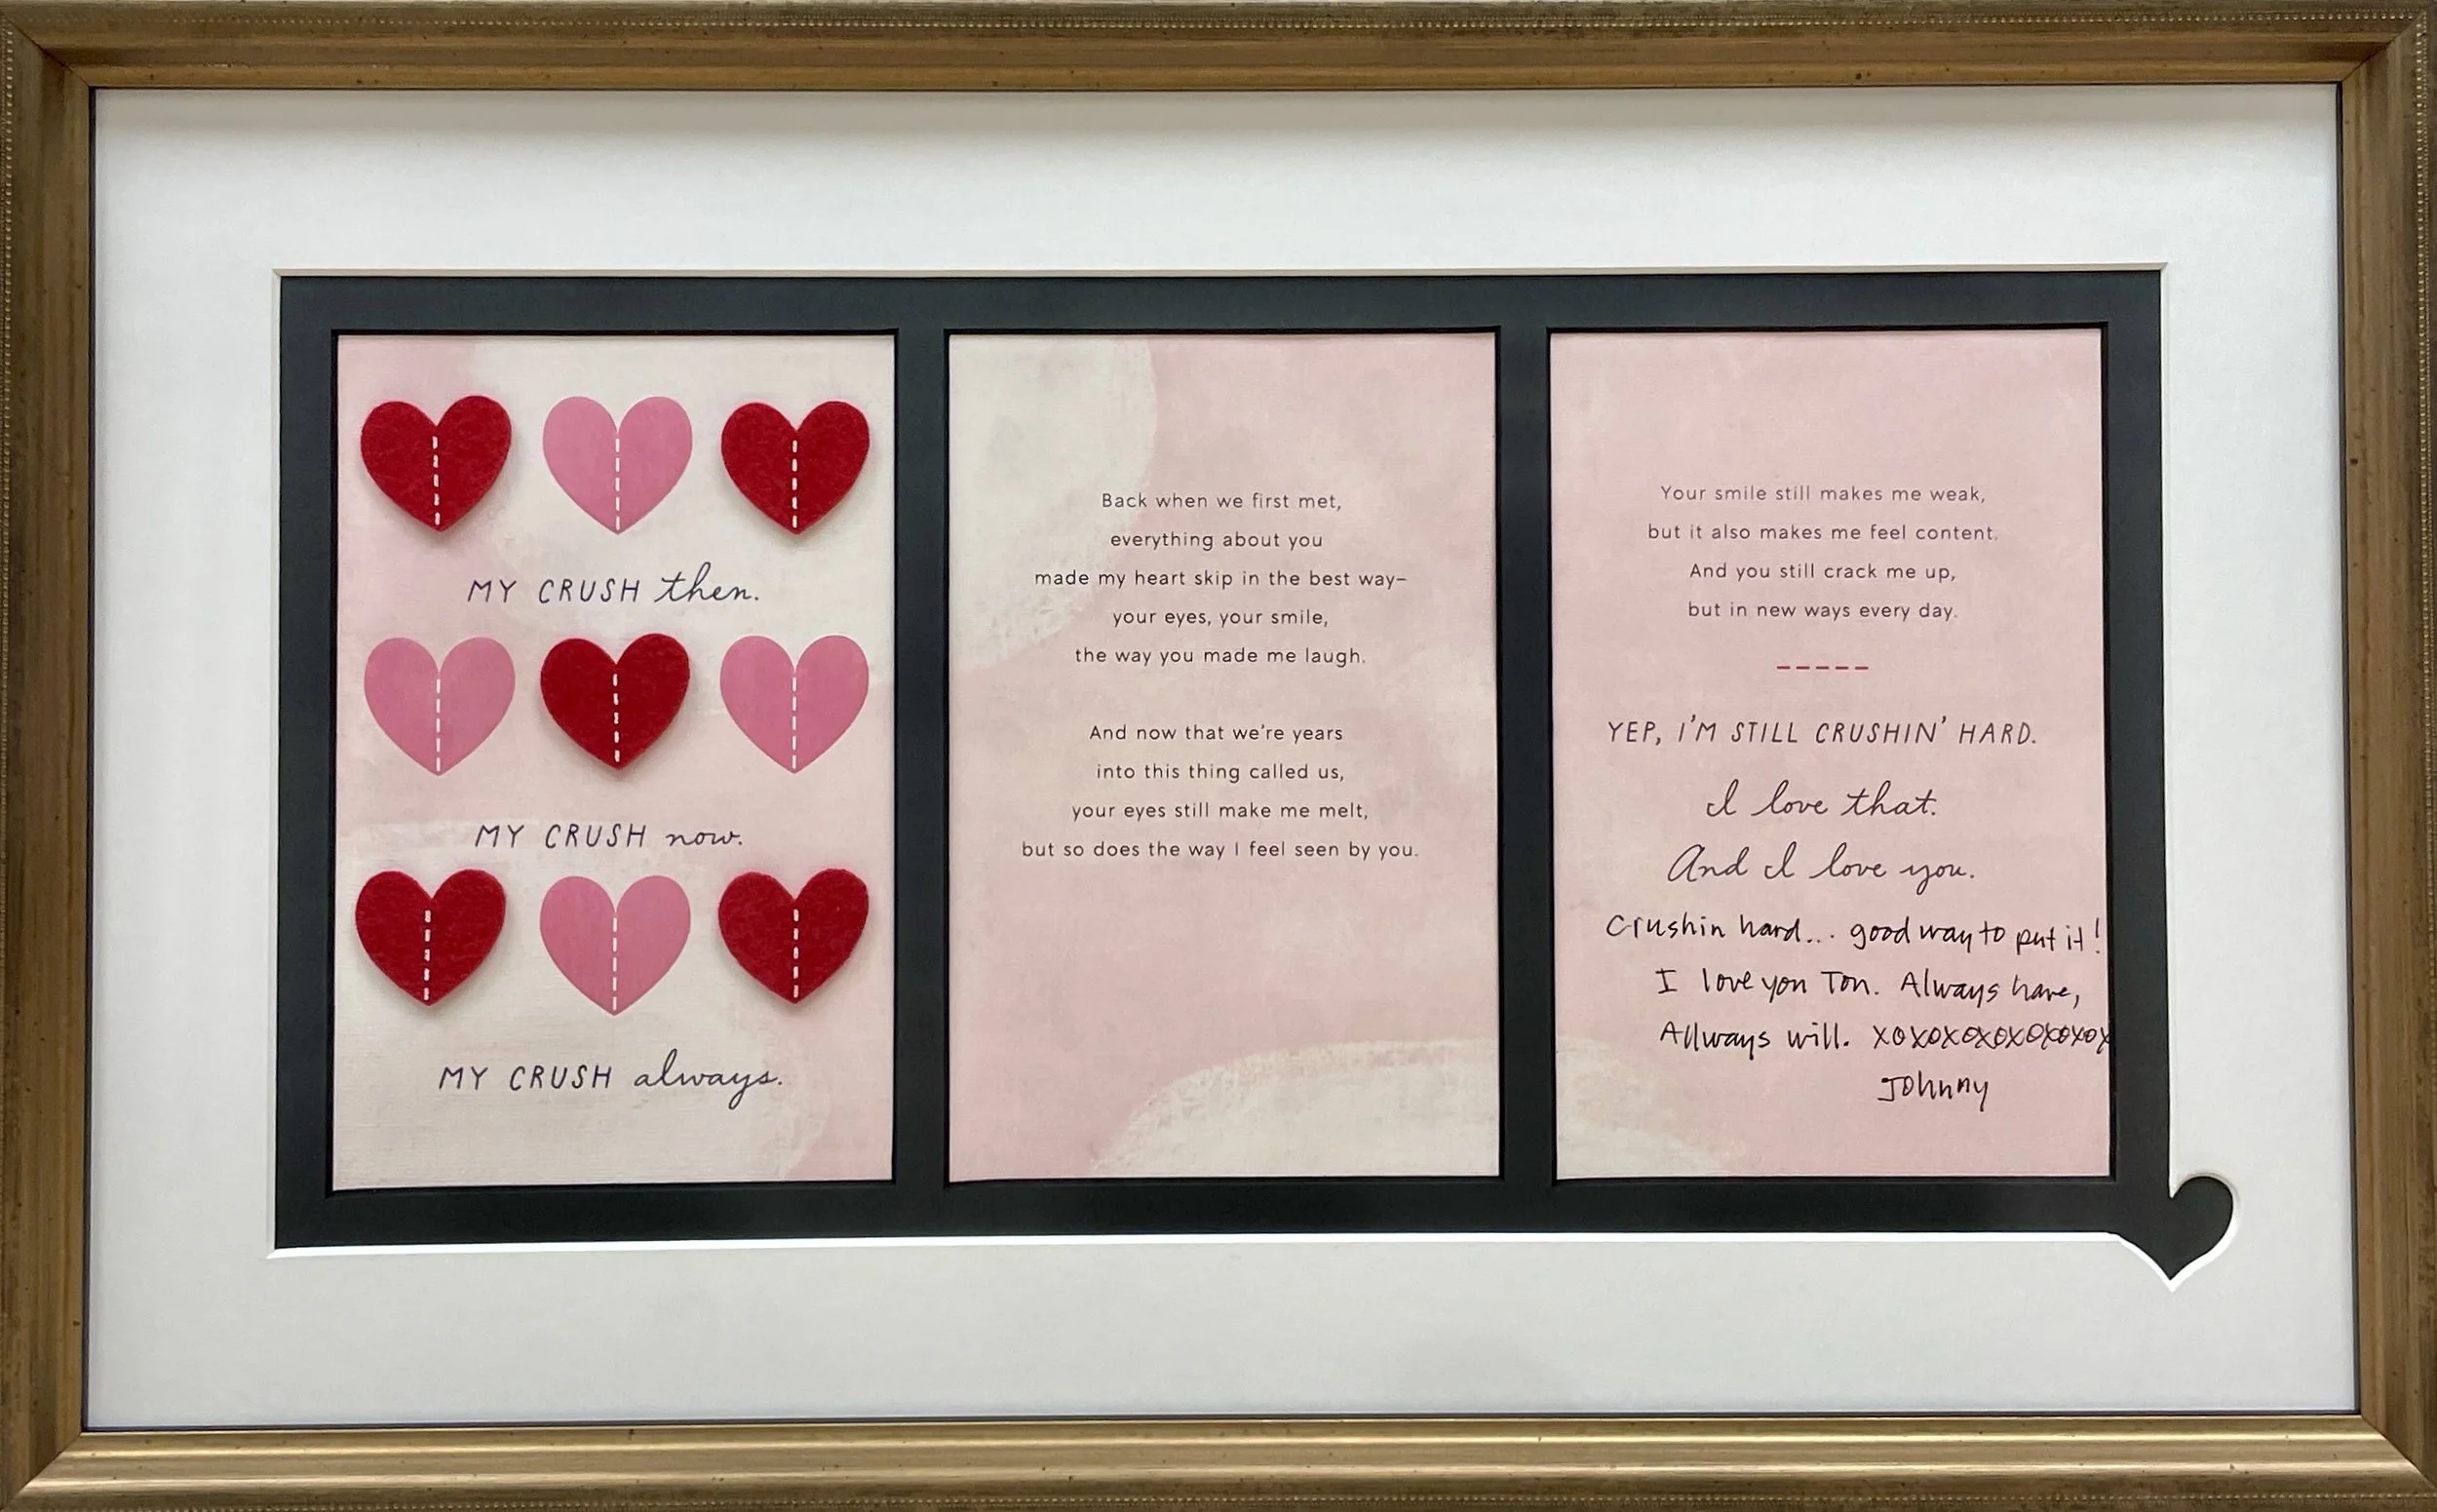 MY CRUSH then.
MY CRUSH now.
MY CRUSH always.
Back when we first met,
everything about you
made my heart skip in the best way–
your eyes, your smile,
the way you made me laugh.
And now that we're years
into this thing called us,
your eyes still make me melt,
but so does the way I feel seen by you.
Your smile still makes me weak,
but it also makes me feel content.
And you still crack me up,
but in new ways every day.
YEP, I'M STILL CRUSHIN' HARD.
I love that.
And I love you.
Crushin hard... good way to put it!
I love you Ton. Always have,
Allways will. XOXOXOXOXOXOXOX
Johnny